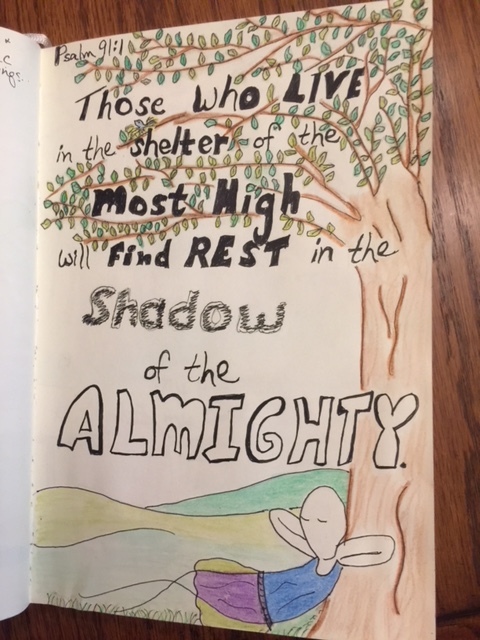 Psalm 91:1
Those who LIVE
in the shelter of the
Most High
will find REST in the
Shadow
of the
ALMIGHTY.